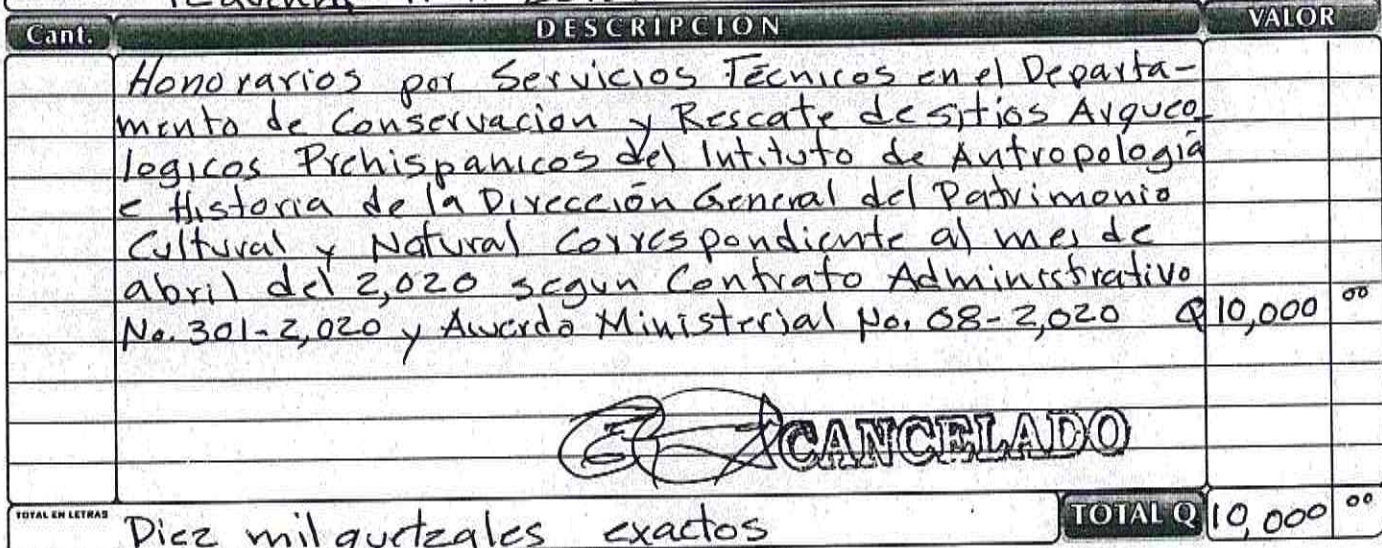 Cant. DESCRIPCION VALOR
Honorarios por Servicios Técnicos en el Departa-
mento de Conservacion y Rescate de sitios Arqueo
logicos Prehispanicos del Intituto de Antropología
e Historia de la Dirección General del Patrimonio
Cultural y Natural Correspondiente al mes de
abril del 2,020 segun Contrato Administrativo
No. 301-2,020 y Acuerdo Ministerial No. 08-2,020 Q 10,000 00
CANCELADO
TOTAL EN LETRAS Diez mil quetzales exactos TOTAL Q 10,000 00